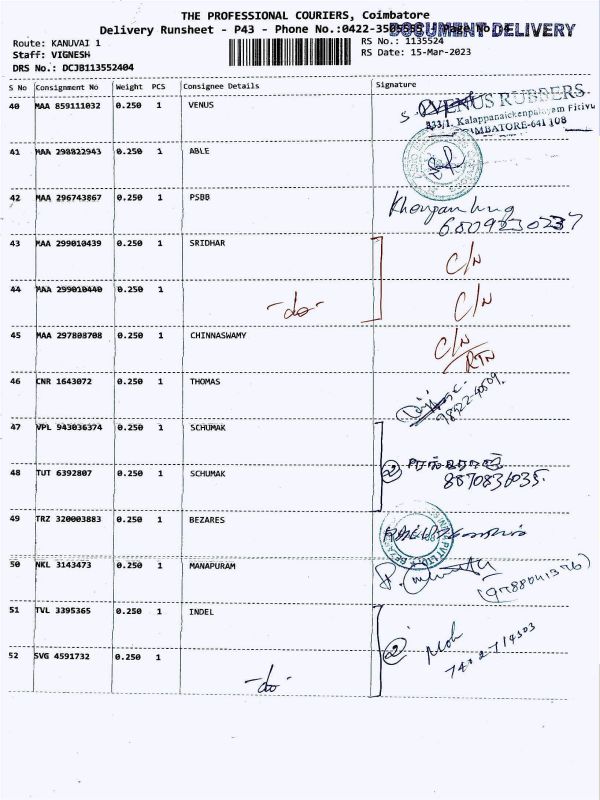 THE PROFESSIONAL COURIERS, Coimbatore
Delivery Runsheet - P43 - Phone No.:0422- Page No.
DOCUMENT DELIVERY
Route: KANUVAI 1
Staff: VIGNESH
DRS No.: DCJB113552404
RS No.: 1135524
RS Date: 15-Mar-2023
S No Consignment No Weight PCS Consignee Details Signature
40 MAA 859111032 0.250 1 VENUS
VENUS RUBBERS
833/1, Kalappanaickenpalayam Firivu
COIMBATORE-641 108
41 MAA 298822943 0.250 1 ABLE
42 MAA 296743867 0.250 1 PSBB
6809230237
43 MAA 299010439 0.250 1 SRIDHAR C/N
44 MAA 299010440 0.250 1 -do- C/N
45 MAA 297808708 0.250 1 CHINNASWAMY C/N
RTN
46 CNR 1643072 0.250 1 THOMAS
47 VPL 943036374 0.250 1 SCHUMAK
48 TUT 6392807 0.250 1 SCHUMAK 2
8870836035.
49 TRZ 320003883 0.250 1 BEZARES
50 NKL 3143473 0.250 1 MANAPURAM
(9788041376)
51 TVL 3395365 0.250 1 INDEL 2
52 SVG 4591732 0.250 1 -do-